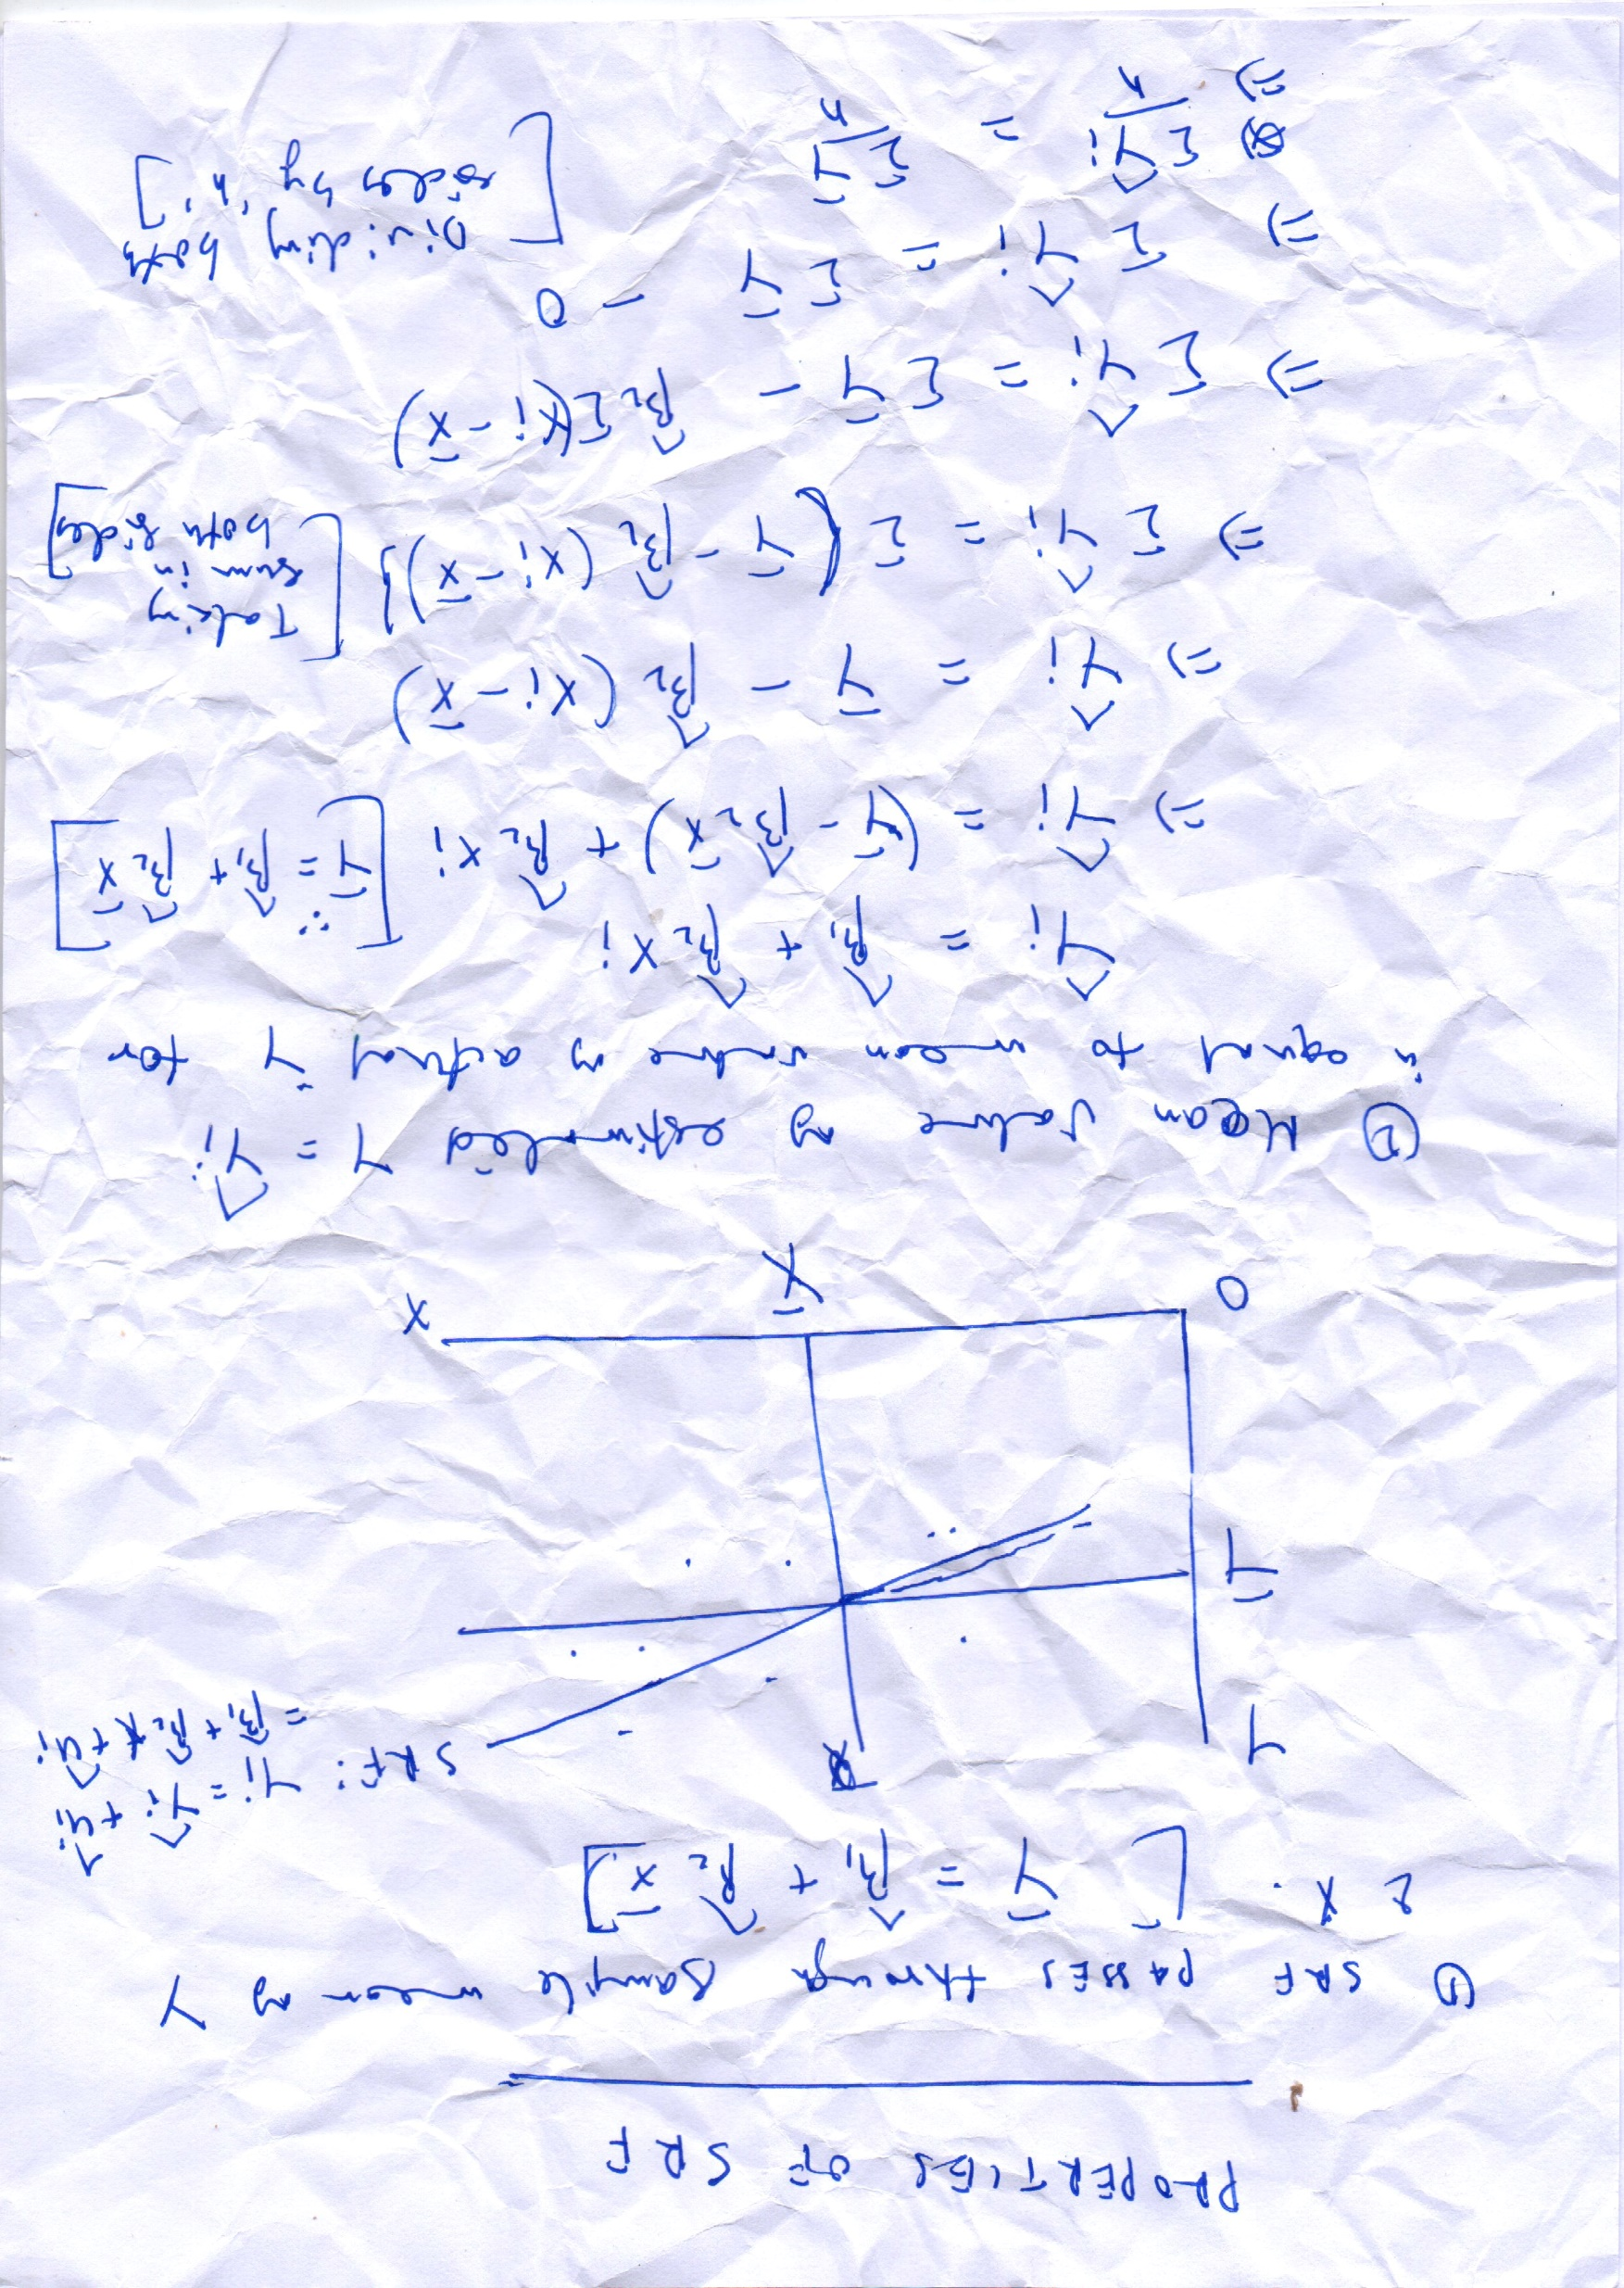 PROPERTIES OF SRF
① SRF PASSES through sample mean of Y
& X. [Ȳ = β̂₁ + β̂₂ X̄]
SRF: Yi = Ŷi + ûi
= β̂₁ + β̂₂X + ûi
Y
Ȳ
O
X̄
X
② Mean value of estimated Y = Ŷi
is equal to mean value of actual Y for
Ŷi = β̂₁ + β̂₂ Xi
=) Ŷi = (Ȳ - β̂₂ X̄) + β̂₂ Xi [∵ Ȳ = β̂₁ + β̂₂ X̄]
=) Ŷi = Ȳ - β̂₂ (Xi - X̄)
=) Σ Ŷi = Σ {Ȳ - β̂₂ (Xi - X̄)} [Taking sum in both sides]
=) Σ Ŷi = Σ Ȳ - β̂₂ Σ(Xi - X̄)
=) Σ Ŷi = Σ Ȳ - 0
=) Σ Ŷi / n = Σ Ȳ / n [Dividing both sides by 'n']